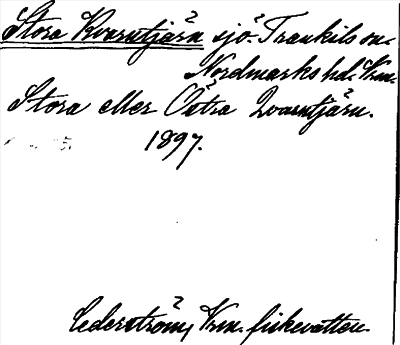 Stora Kvarntjärn sjö. Trankils sn.
Nordmarks hd. Vrm.
Stora eller Östra Qvarntjärn.
1897.
Cederström, Vrm. fiskevatten.